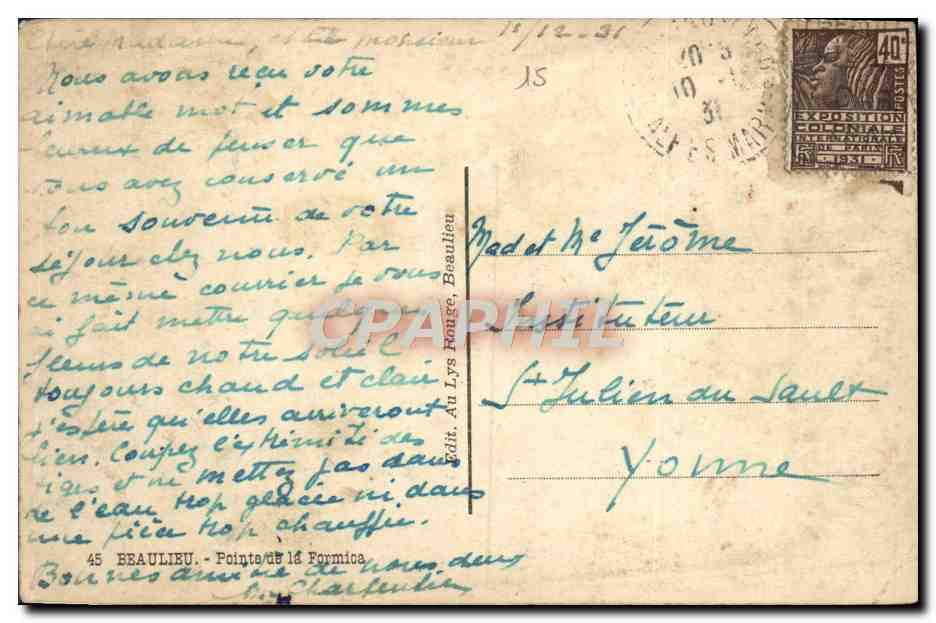 Chère madame, cher monsieur 11/12-31
Nous avons reçu votre
aimable mot et sommes
heureux de penser que
vous avez conservé un
bon souvenir de votre
séjour chez nous. Par
ce même courrier je vous
ai fait mettre quelques
fleurs de notre soleil
toujours chaud et clair
j'espère qu'elles arriveront
bien. Coupez l'extrémité des
tiges et ne mettez pas dans
de l'eau trop glacée ni dans
une pièce trop chauffée.
45 BEAULIEU. - Pointe de la Formica
Bonnes amitiés de nous deux
Charpentier
15
Edit. Au Lys Rouge, Beaulieu
CPAPHIL
31
ALPES MAR
40c
POSTES
EXPOSITION
COLONIALE
INTERNATIONALE
DE PARIS
1931
Mad et Mr Jérôme
Instituteur
St Julien du Sault
Yonne